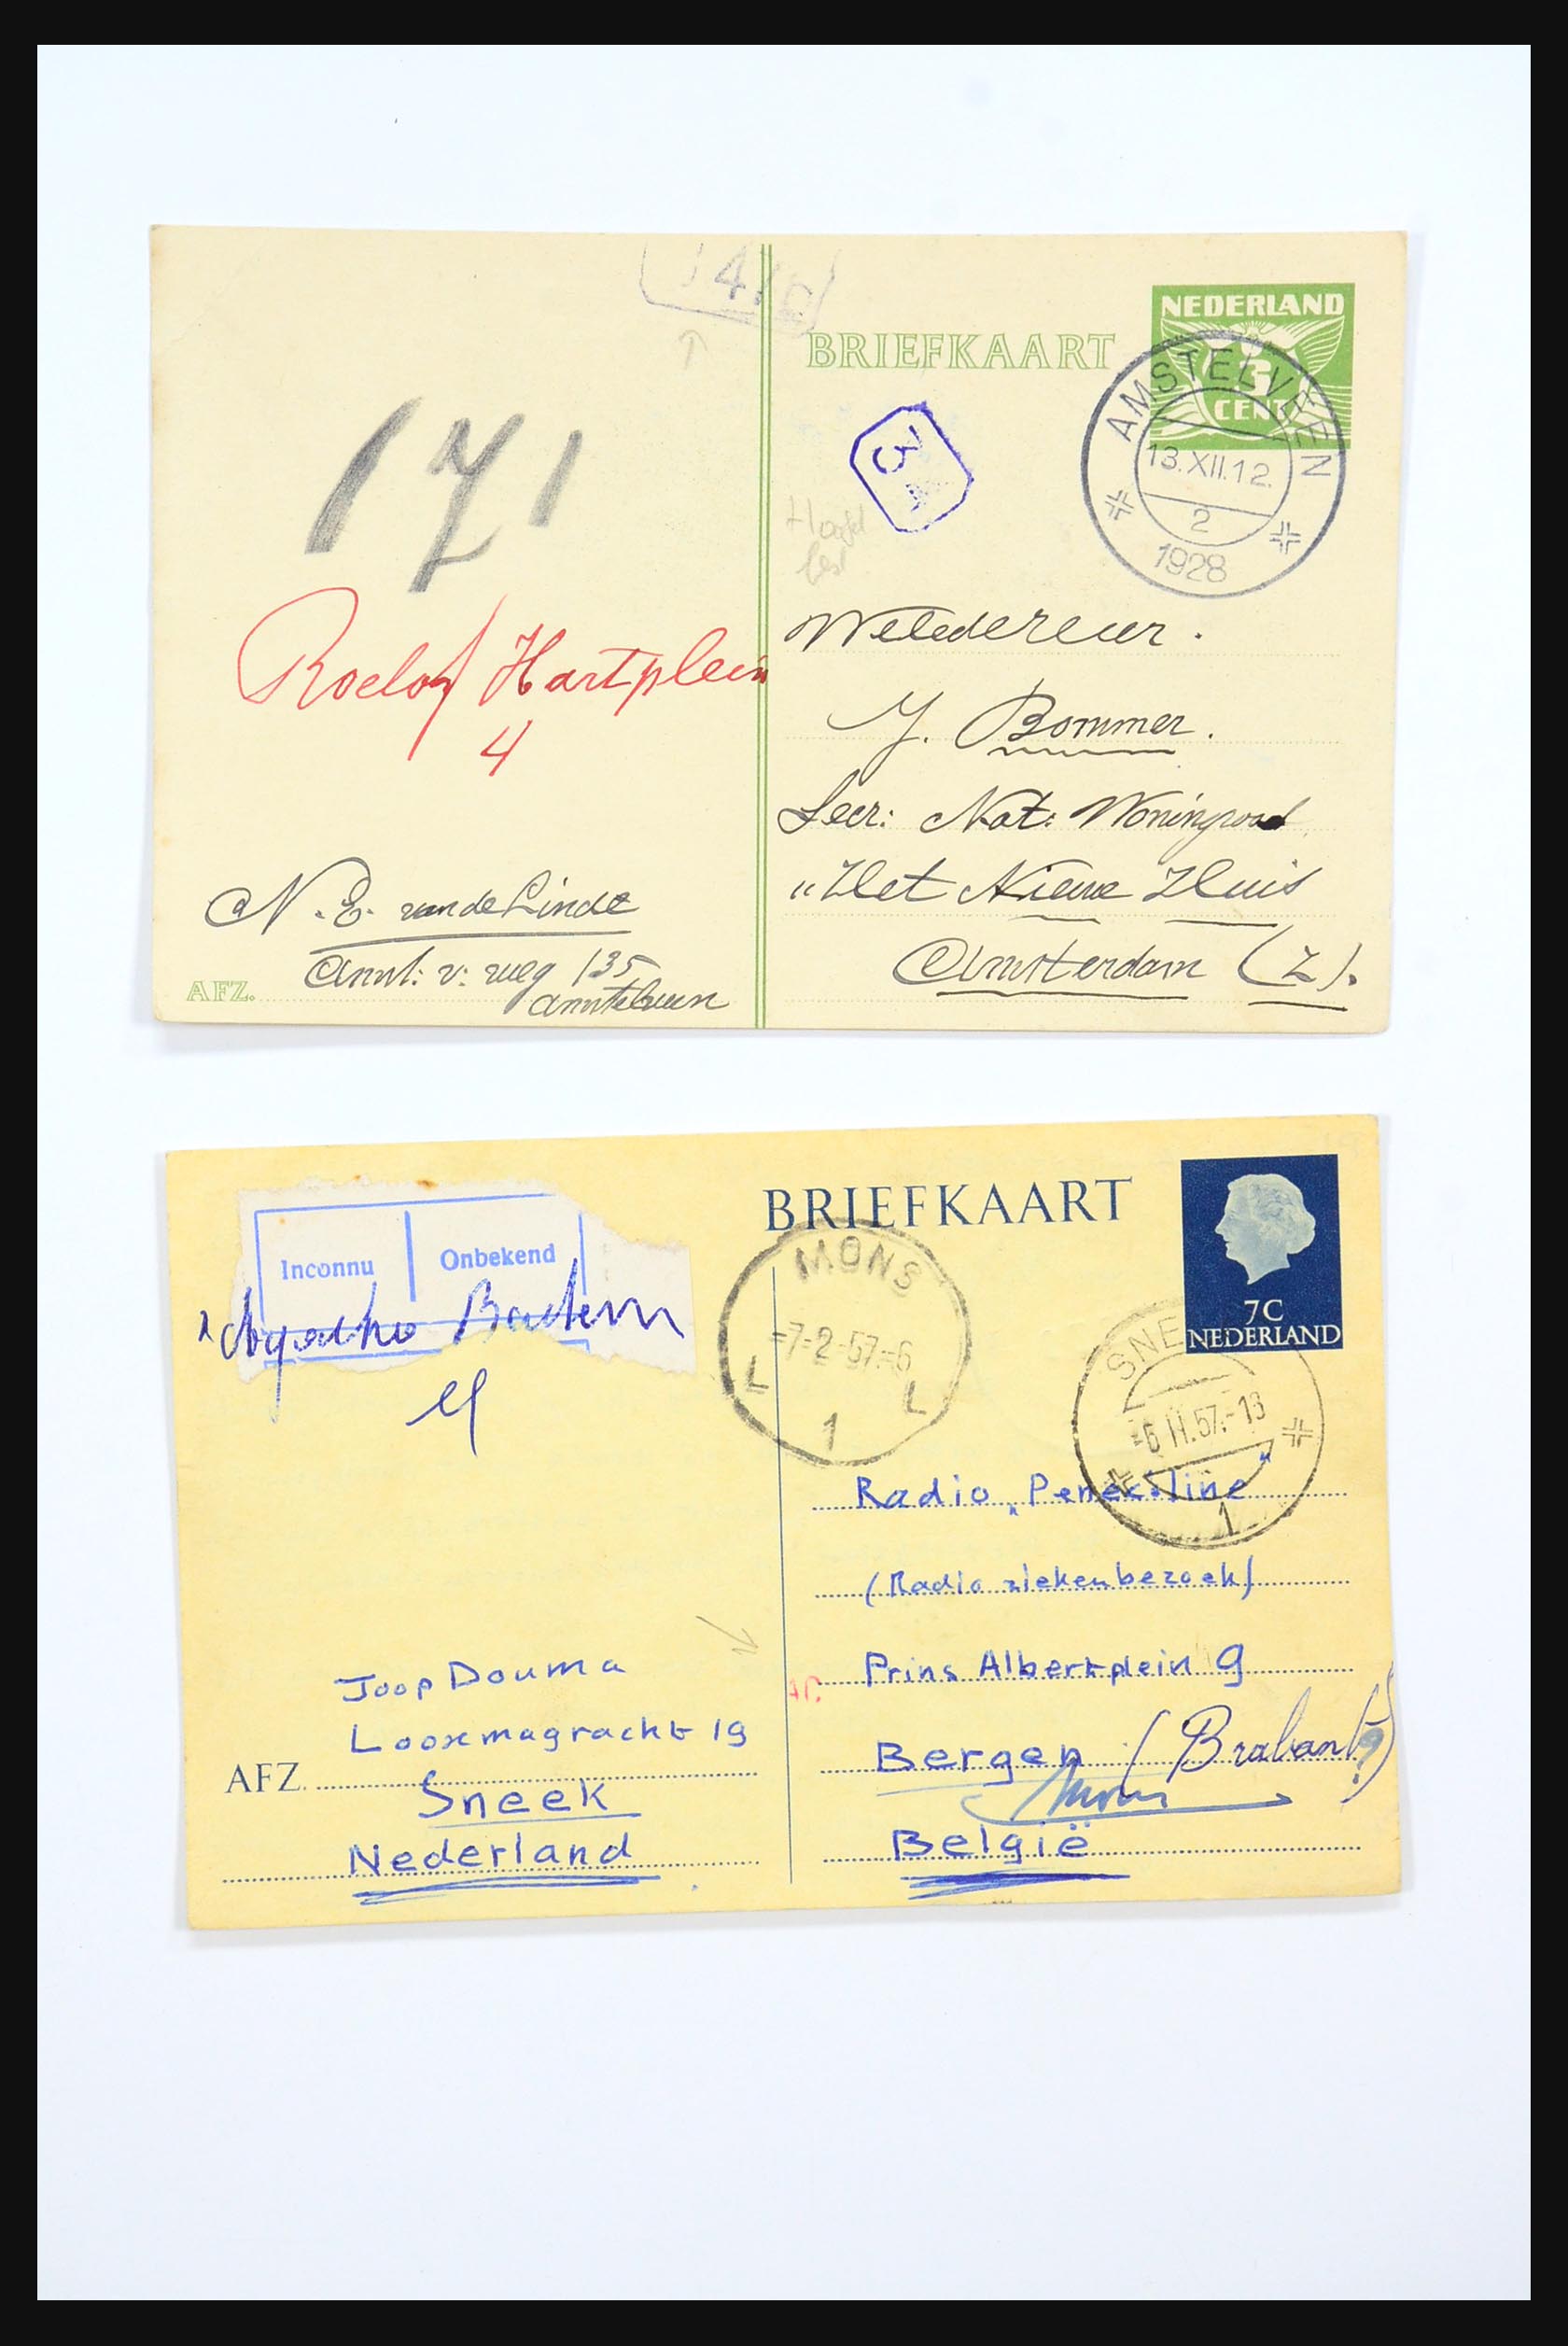 BRIEFKAART
NEDERLAND
3
CENT
AMSTELVEEN
13.XII.12.
2
1928
171
3
Roelof Hartplein
4
Weledereer.
J. Bommer.
Secr: Nat: Woningraad
"Het Nieuwe Huis
Amsterdam (Z).
N. E. van de Linde
Amst: v: weg 135
Amstelveen
AFZ.
BRIEFKAART
7C
NEDERLAND
Inconnu Onbekend
MONS
-7-2-57.-6
L L
1
SNE
-6 II.57.-13
1
Radio „Penec:line"
(Radio ziekenbezoek)
Prins Albertplein 9
Bergen (Brabant?)
Mons
België
Joop Douma
Looxmagracht 19
AFZ.
Sneek
Nederland